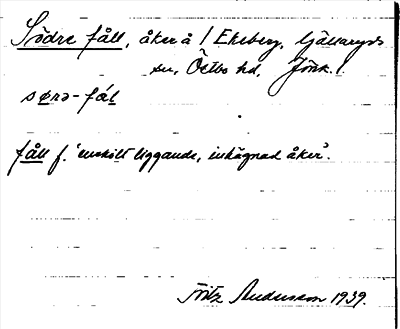 Södre fåll, åker å / Ekeberg, Gällaryds
sn, Östbo hd, Jönk. l.
sørə-fål
fåll f. 'enskilt liggande, inhägnad åker'.
Fritz Andersson 1939.